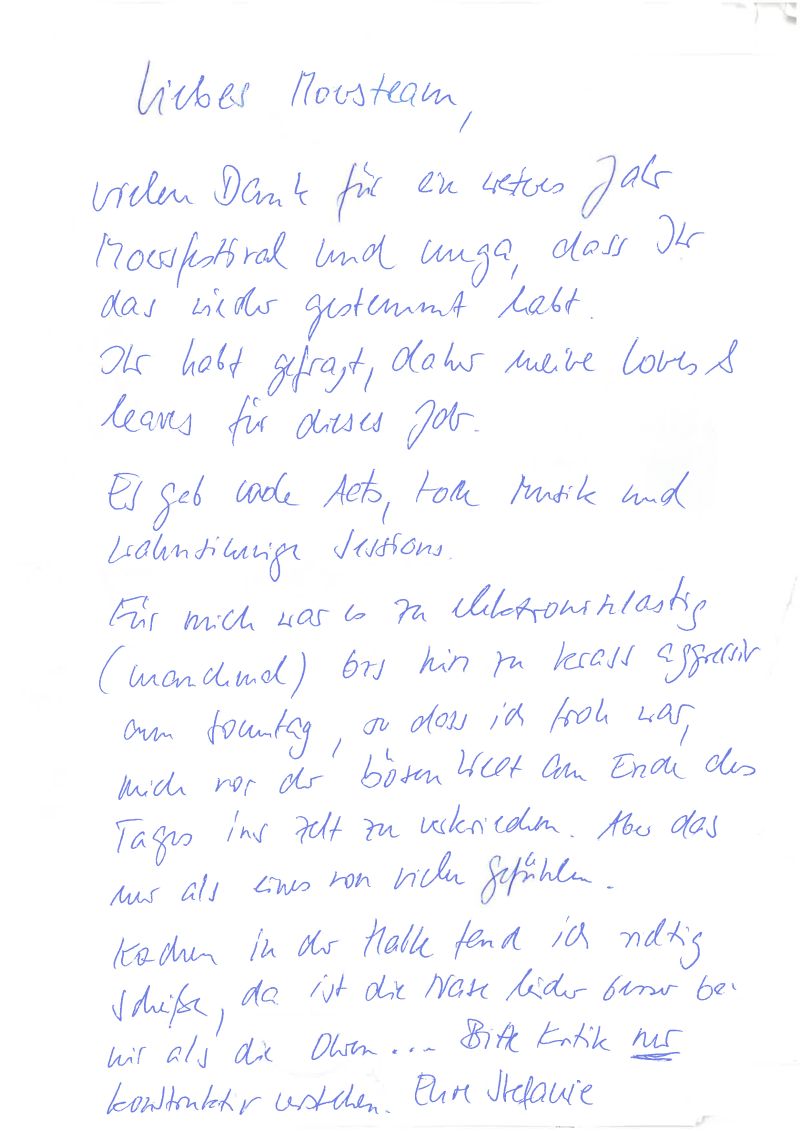 Liebes Moersteam,
vielen Dank für ein weiteres Jahr
Moersfestival und mega, dass Ihr
das wieder gestemmt habt.
Ihr habt gefragt, daher meine loves &
leaves für dieses Jahr.
Es gab coole Acts, tolle Musik und
wahnsinnige Sessions.
Für mich war es zu elektroniklastig
(manchmal) bis hin zu krass aggressiv
am Sonntag, so dass ich froh war,
mich vor der bösen Welt am Ende des
Tages ins Zelt zu verkriechen. Aber das
nur als eines von vielen Gefühlen.
Kochen in der Halle fand ich richtig
scheiße, da ist die Nase leider besser bei
mir als die Ohren... Bitte Kritik nur
konstruktiv verstehen. Eure Stefanie